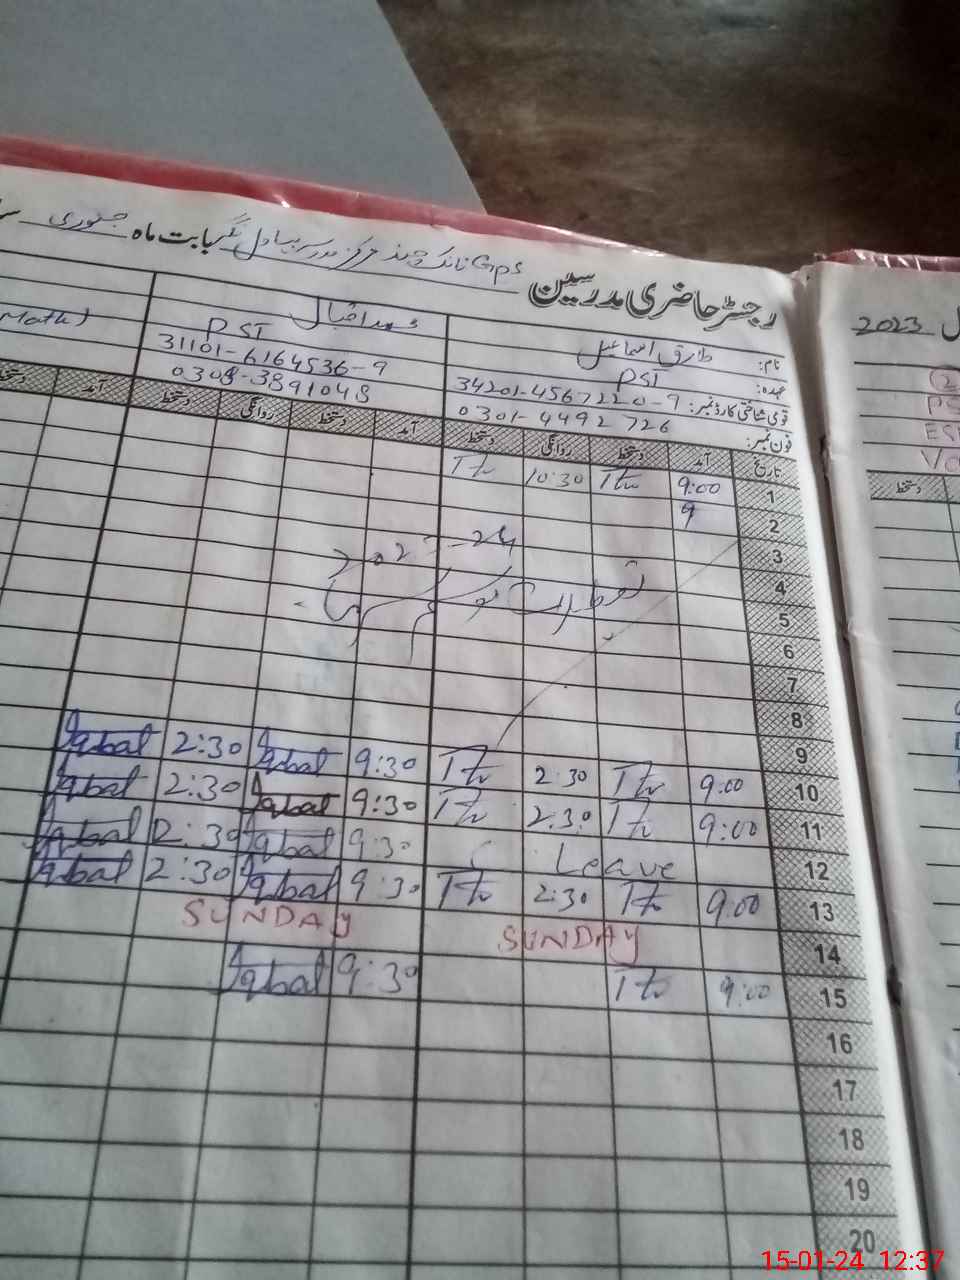 رجسٹر حاضری مدرسین Gps نانک چند مرکز مدرسہ بہاول نگر بابت ماہ جنوری
نام: طارق اسماعیل محمد اقبال
عہدہ: PST PST Math)
قومی شناختی کارڈ نمبر: 34201-4567220-9 31101-6164536-9
فون نمبر: 0301-4492726 0308-3891048
تاریخ آمد دستخط روانگی دستخط آمد دستخط روانگی دستخط آمد دستخط
1 9:00 Th 10:30 Th
2 9
3
2023-24
4
تعطیلات موسم سرما
5
6
7
8
9
10 9:00 Th 2:30 Th 9:30 Iqbal 2:30 Iqbal
11 9:00 Th 2:30 Th 9:30 Iqbal 2:30 Iqbal
12 Leave 9:30 Iqbal 2:30 Iqbal
13 9:00 Th 2:30 Th 9:30 Iqbal 2:30 Iqbal
14 SUNDAY SUNDAY
15 9:00 Th 9:30 Iqbal
16
17
18
19
20
2023
دستخط
15-01-24 12:37